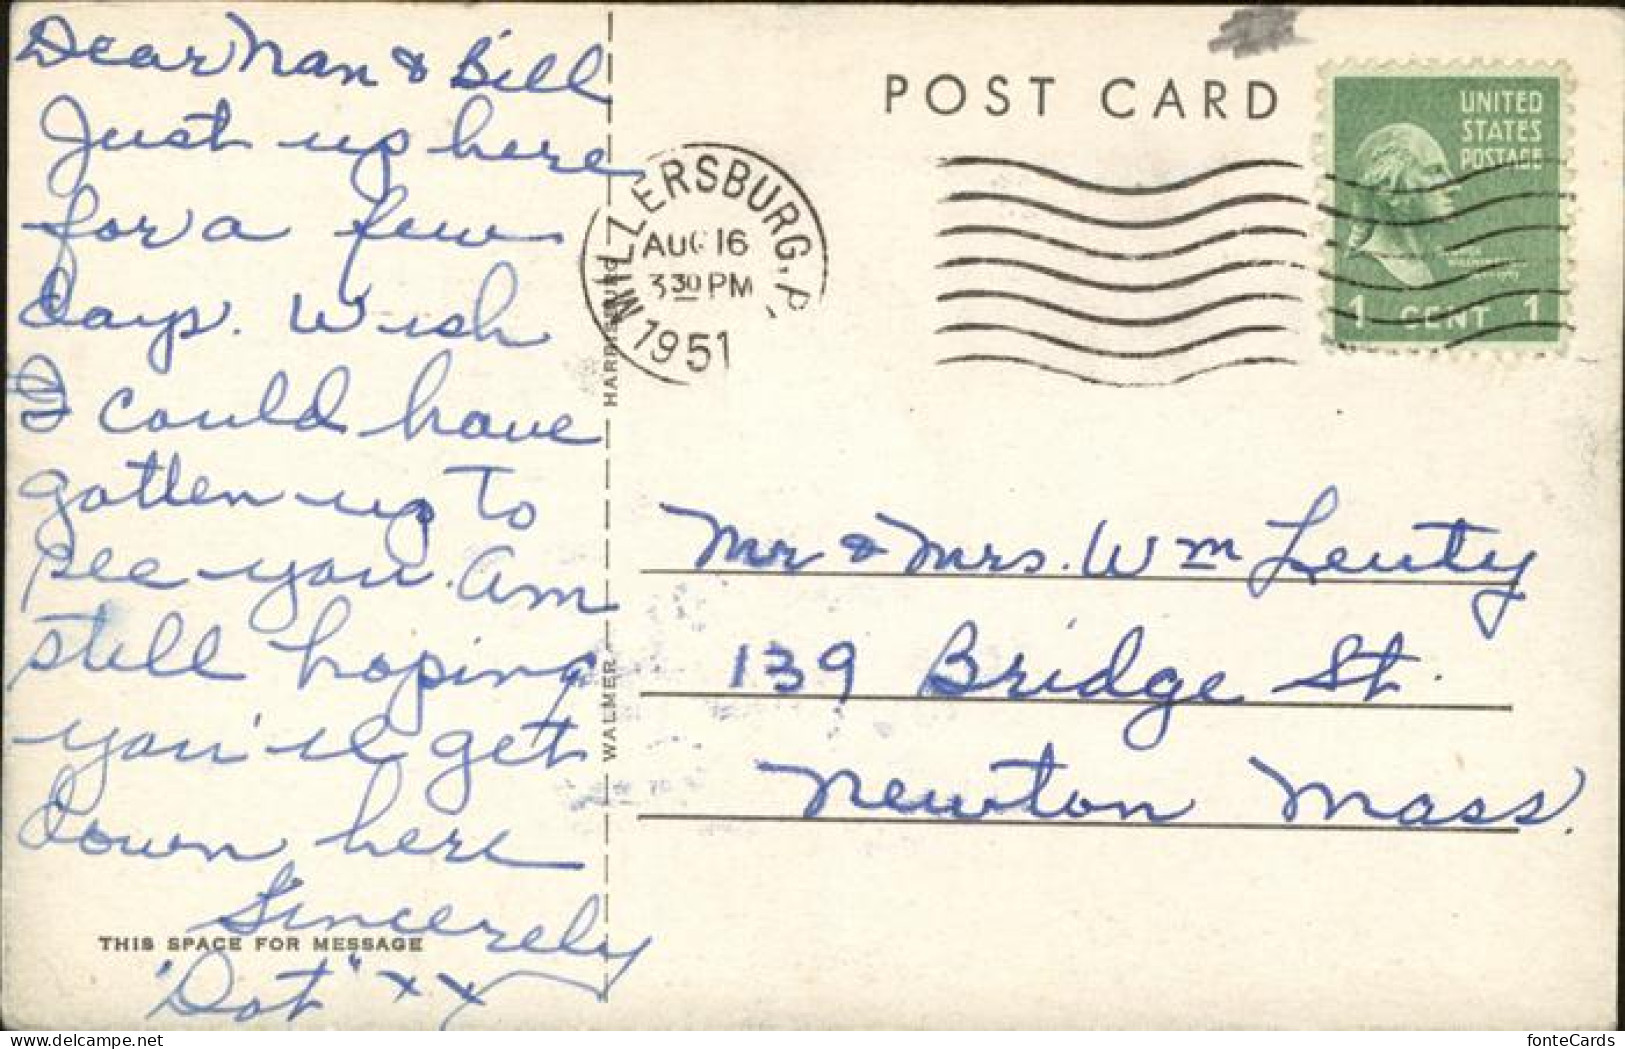 Dear Nan & Bill
Just up here
for a few
days. Wish
I could have
gotten up to
see you. Am
still hoping
you'll get
down here
Sincerely
"Dot" xx
THIS SPACE FOR MESSAGE
WALMER
HARRISBURG
POST CARD
MILLERSBURG, P
AUG 16
3 30 PM
1951
UNITED
STATES
POSTAGE
1 CENT 1
Mr & Mrs. Wm Lenty
139 Bridge St.
Newton Mass.
delcampe.net
fonteCards